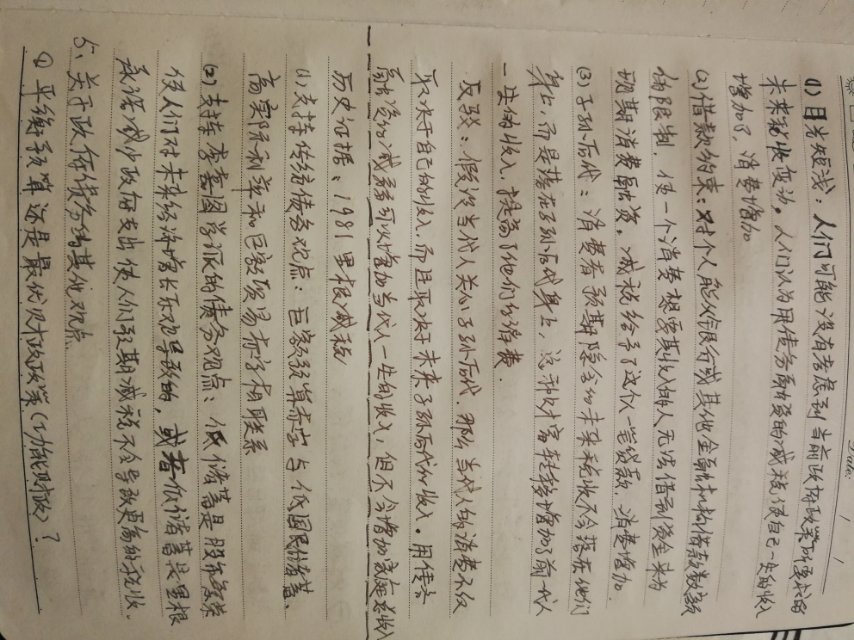 (1) 目光短浅：人们可能没有考虑到当前政府政策所要求的
未来税收变动。人们认为用债务融资的减税使自己一生的收入
增加了，消费增加
(2) 借款约束：对个人能从银行或其他金融机构借款数额
的限制，使一个消费想要期收入的人无法借到资金来为
现期消费融资。减税给予了这个人一笔贷款，消费增加
(3) 子孙后代：消费者预期隐含的未来税收不会落在他们
身上，而是落在子孙后代身上，这种财富转移增加了前一代人
一生的收入，提高了他们的消费．
反驳：假设当代人关心子孙后代，那么当代人的消费不仅
取决于自己的收入，而且取决于未来子孙后代的收入。用债务
融资的减税可以增加当代人一生的收入，但不会增加家庭总收入
历史证据：1981里根减税
(1) 支持传统债务观点：巨额预算赤字与低国民储蓄、
高实际利率和巨额贸易赤字相联系
(2) 支持李嘉图学派的债务观点：低储蓄是股市繁荣
使人们对未来经济增长乐观导致的，或者低储蓄是里根
承诺减少政府支出使人们预期减税不会导致更高的税收．
5、关于政府债务的其他观点．
① 平衡预算还是最优财政政策（功能财政）？